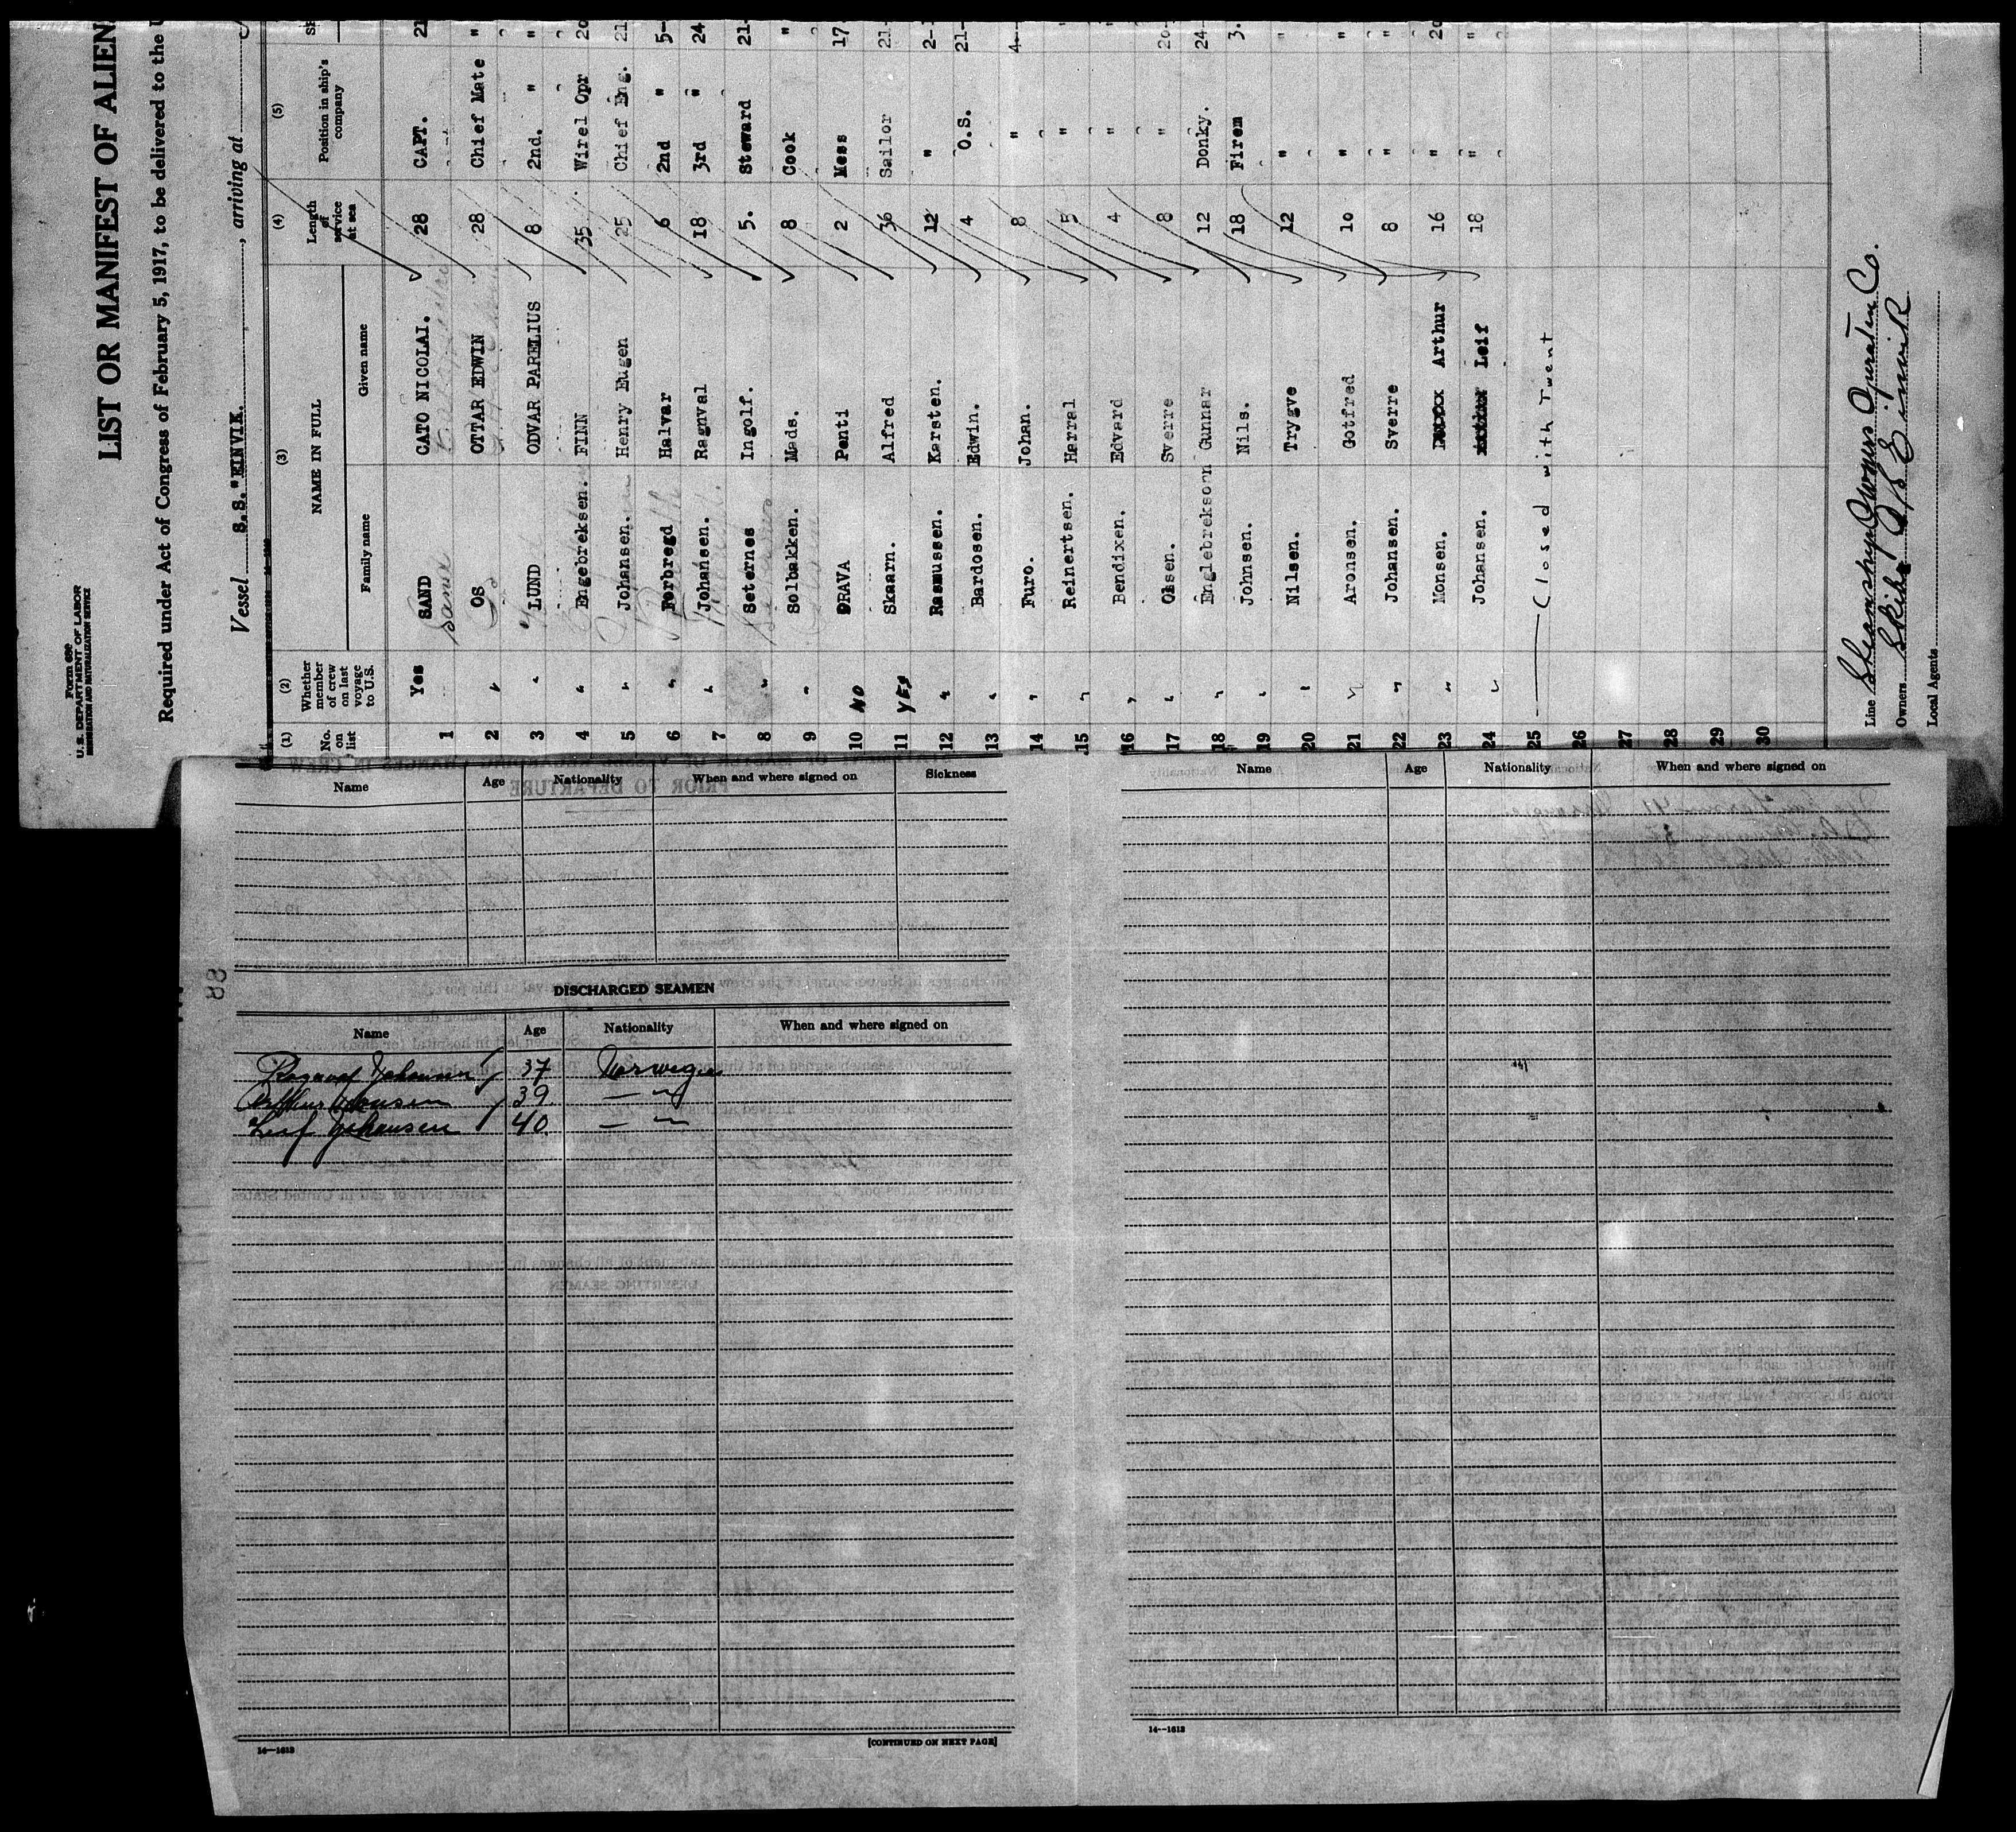 Form 680
U.S. DEPARTMENT OF LABOR
IMMIGRATION AND NATURALIZATION SERVICE
LIST OR MANIFEST OF ALIEN
Required under Act of Congress of February 5, 1917, to be delivered to the U
Vessel S.S. "EINVIK. , arriving at
(1) (2) (3) (4) (5)
No. on list Whether member of crew on last voyage to U.S. NAME IN FULL Length of service at sea Position in ship's company
Family name Given name
1 Yes SAND CATO NICOLAI. 28 CAPT. 21
2 " OS OTTAR EDWIN 28 Chief Mate "
3 " LUND ODVAR PARELIUS 8 2nd. " "
4 " Engebreksen. FINN 35 Wirel Opr 20
5 " Johansen. Henry Eugen 25 Chief Eng. 21
6 " Forbregd Halvar 6 2nd " 5-
7 " Johansen. Ragnval 18 3rd " 24
8 " Seternes Ingolf. 5. Steward 21-
9 " Solbakken. Mads. 8 Cook "
10 NO ORAVA Penti 2 Mess 17
11 YES Skaarn. Alfred 36 Sailor 21-
12 " Rasmussen. Karsten. 12 " 2-
13 " Bardosen. Edwin. 4 O.S. 21-
14 " Furo. Johan. 8 " 4-
15 " Reinertsen. Harral 5 " "
16 " Bendixen. Edvard 4 " "
17 " Olsen. Sverre 8 " 20-
18 " Englebrekson Gunnar 12 Donky. 24-
19 " Johnsen. Nils. 18 Firem 3.
20 " Nilsen. Trygve 12 " "
21 " Aronsen. Gotfred 10 " "
22 " Johansen. Sverre 8 " "
23 " Monsen. Arthur 16 " 20
24 " Johansen. Leif 18 " "
25 Closed with Twent
26
27
28
29
30
Line Steamship Owners Operaten Co.
Owners Skibs A/S Einvik
Local Agents
Name Age Nationality When and where signed on Sickness
88
DISCHARGED SEAMEN
Name Age Nationality When and where signed on
Ragnval Johansen 37 Norwegian
Arthur Monsen 39 — " —
Leif Johansen 40 — " —
14—1613
[CONTINUED ON NEXT PAGE]
Name Age Nationality When and where signed on
14—1613